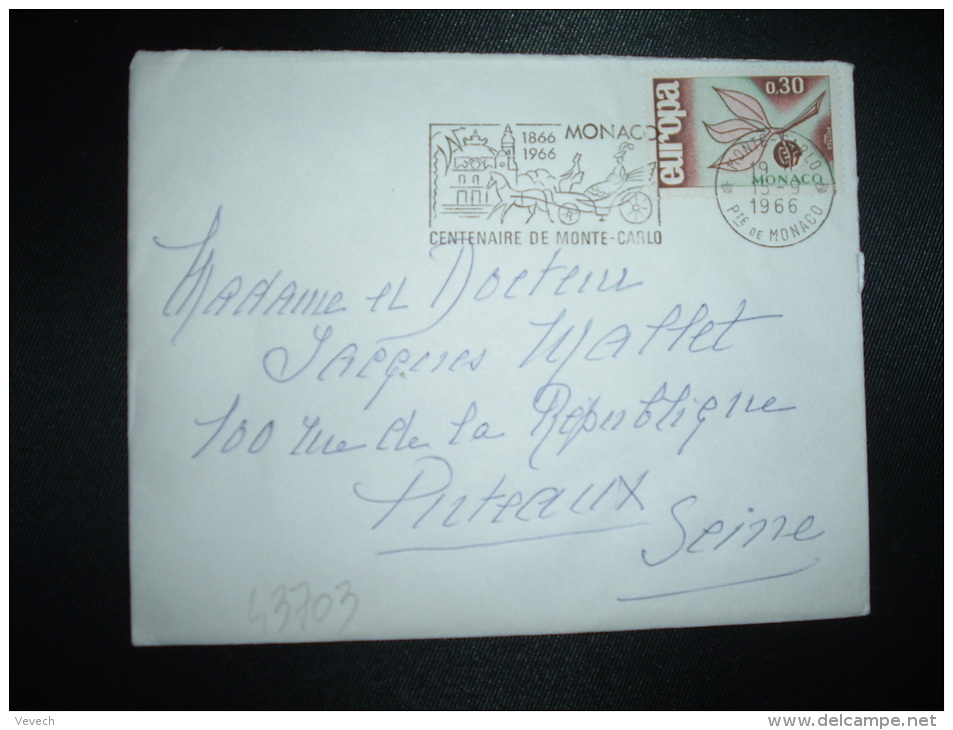 1866 MONACO
1966
CENTENAIRE DE MONTE-CARLO
europa
0,30
MONACO
MONTE-CARLO
15-9
1966
PTE DE MONACO
Madame et Docteur
Jacques Mallet
100 rue de la République
Puteaux
Seine
43703
Vevech
www.delcampe.net